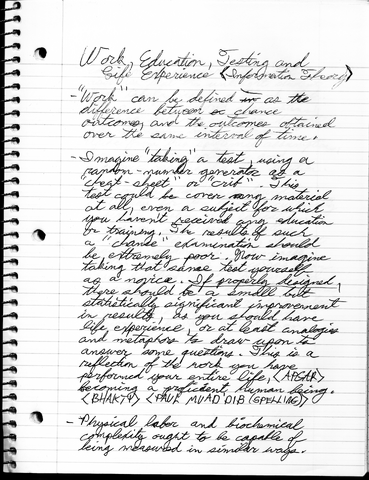 Work, Education, Testing and
Life Experience <Information Theory>
- "Work" can be defined as the
difference between a chance
outcomes, and the outcomes obtained
over the same interval of time.
- Imagine "taking" a test, using a
"random-number generator as a
"cheat-sheet" or "crib". This
test could be covering material
at all, even a subject for which
you haven't received any education
or training. The results of such
a "chance" examination should
be extremely poor. Now imagine
taking that same test yourself
as a novice. If properly designed,
there should be a small but
statistically significant improvement
in results, as you should have
life experience, or at least analogies
and metaphors to draw upon to
answer some questions. This is a
reflection of the work you have
performed your entire life, <APGAR>
becoming a proficient human being.
<BHAKTI> <PAUL MUAD DIB (SPELLING)>
- Physical labor and biochemical
complexity ought to be capable of
being measured in similar ways.